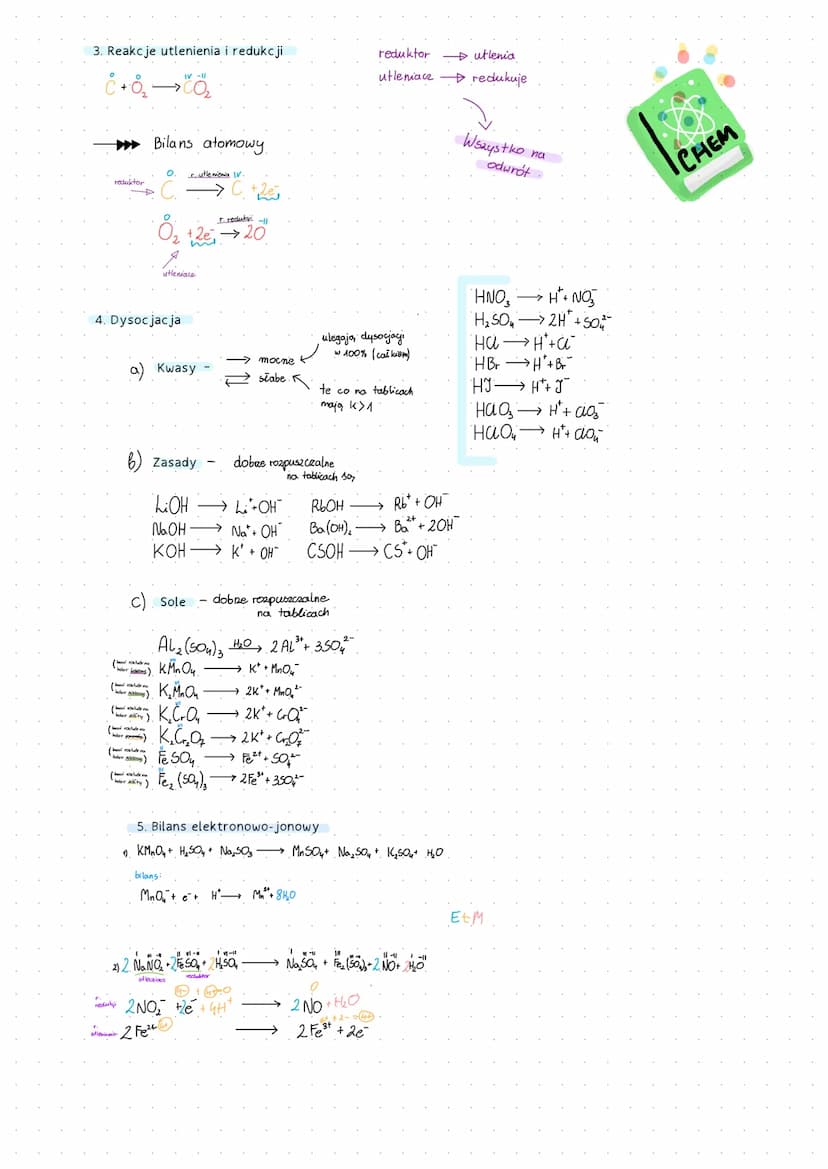 3. Reakcje utlenienia i redukcji
reduktor → utlenia
utleniacz → redukuje
Wszystko na
odwrót.
CHEM
0 0 IV -II
C + O₂ → CO₂
Bilans atomowy
reduktor
0 r. utlenienia IV
C → C + 2e⁻
0 r. redukcji -II
O₂ + 2e⁻ → 2O
utleniacz
4. Dysocjacja
a) Kwasy -
→ mocne
⇄ słabe
ulegają dysocjacji
w 100% (całkiem)
te co na tablicach
mają K>1
HNO₃ → H⁺ + NO₃⁻
H₂SO₄ → 2H⁺ + SO₄²⁻
HCl → H⁺ + Cl⁻
HBr → H⁺ + Br⁻
HJ → H⁺ + J⁻
HClO₃ → H⁺ + ClO₃⁻
HClO₄ → H⁺ + ClO₄⁻
b) Zasady - dobrze rozpuszczalne
na tablicach są
LiOH → Li⁺ + OH⁻ RbOH → Rb⁺ + OH⁻
NaOH → Na⁺ + OH⁻ Ba(OH)₂ → Ba²⁺ + 2OH⁻
KOH → K⁺ + OH⁻ CSOH → CS⁺ + OH⁻
c) Sole - dobrze rozpuszczalne
na tablicach
Al₂(SO₄)₃ H₂O → 2Al³⁺ + 3SO₄²⁻
KMnO₄ → K⁺ + MnO₄⁻
K₂MnO₄ → 2K⁺ + MnO₄²⁻
K₂CrO₄ → 2K⁺ + CrO₄²⁻
K₂Cr₂O₇ → 2K⁺ + Cr₂O₇²⁻
FeSO₄ → Fe²⁺ + SO₄²⁻
Fe₂(SO₄)₃ → 2Fe³⁺ + 3SO₄²⁻
5. Bilans elektronowo-jonowy
1) KMnO₄ + H₂SO₄ + Na₂SO₃ → MnSO₄ + Na₂SO₄ + K₂SO₄ + H₂O
bilans:
MnO₄⁻ + e⁻ + H⁺ → Mn²⁺ + 8H₂O
EtM
2) 2NaNO₂ + 2FeSO₄ + 2H₂SO₄ → Na₂SO₄ + Fe₂(SO₄)₃ + 2NO + 2H₂O
utleniacz reduktor
r. redukcji 2NO₂⁻ + 2e⁻ + 4H⁺ → 2NO + H₂O
r. utlenienia 2Fe²⁺ → 2Fe³⁺ + 2e⁻